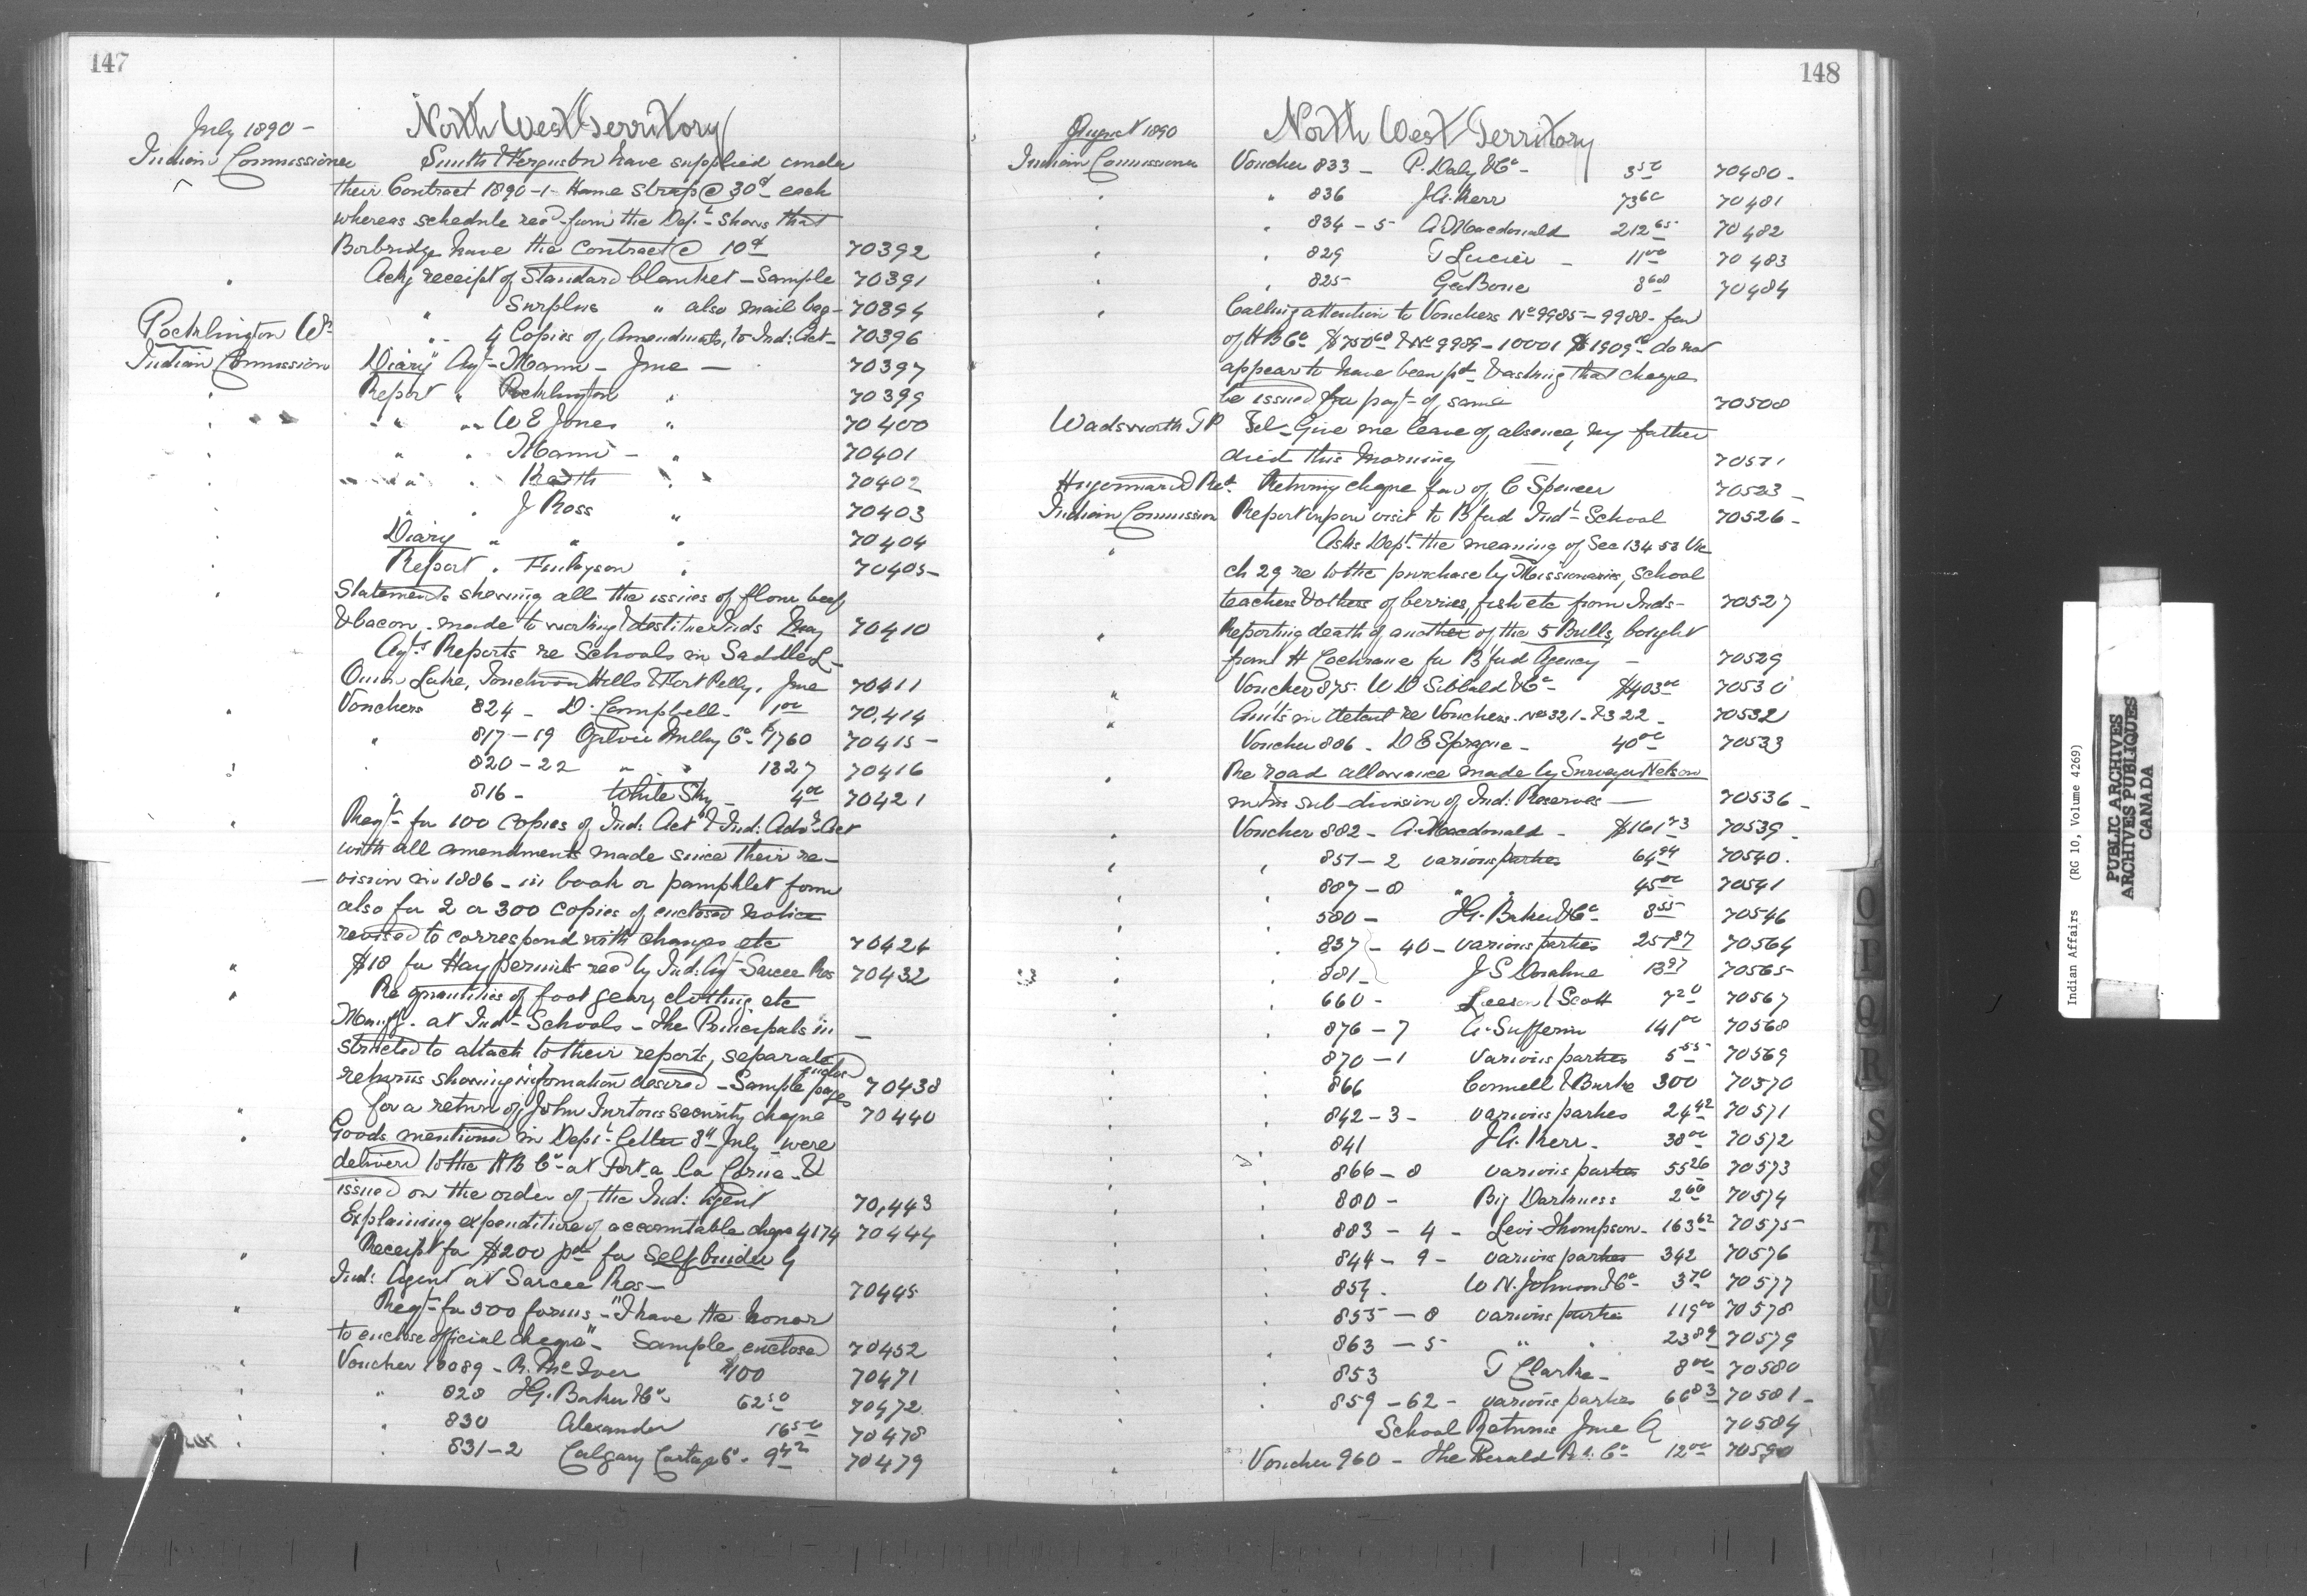 147
July 1890 -
North West Territory
Indian Commissioner Smith & Ferguson have supplied under
their Contract 1890-1- Hame Straps @ 30¢ each
whereas schedule rec'd from the Dept shows that
Borbridge have the Contract @ 10¢ 70392
" Ackg receipt of Standard blanket - Sample 70391
" Surplus " also mail bag - 70394
Pocklington W. " 4 Copies of Amendments to Ind: Act - 70396
Indian Commission Diary Agt Mann - June - 70397
" Report " Pocklington " 70399
" " " W E Jones " 70400
" " " Mann - " 70401
" " " Keith " 70402
" " " J Ross " 70403
" Diary " " " 70404
" Report " Finlayson " 70405-
" Statements showing all the issues of flour beef
& bacon made to working & destitute Inds May 70410
Agts Reports re Schools in Saddle L-
Onion Lake, Touchwood Hills & Fort Pelly, June 70411
" Vouchers 824 - D. Campbell - 1.00 70,414
" 817-19 Ogilvie Milling Co $1760 70415-
" 820-22 " " 1327 70416
" 816 - White Sky - 4.00 70421
" Reqt for 100 Copies of Ind: Act & Ind: Advt Act
with all amendments made since their re-
vision in 1886 - in book or pamphlet form
also for 2 or 300 Copies of enclosed notice
revised to correspond with changes etc 70424
" $18 for Hay permits rec'd by Ind: Agt Sarcee Res 70432
" Re quantities of foot gear, clothing etc
Manuf. at Indl Schools - The Principals in-
structed to attach to their reports, separate
returns showing information desired - Sample pages enclosed 70438
" for a return of John Turtons security cheque 70440
" Goods mentioned in Dept letter 8th July were
delivered to the H B Co at Fort a la Corne &
issued on the order of the Ind: Agent 70,443
Explaining expenditure of accountable cheque 4174 70444
" Receipt for $200 pd for Self binder by
Ind: Agent at Sarcee Res - 70445
" Reqt for 500 forms - "I have the honor
to enclose official cheque" - Sample enclosed 70452
" Voucher 10089 - R. McIver $100 70471
" " 828 I.G. Baker & Co 62.50 70472
" " 830 Alexander 16.50 70478
" " 831-2 Calgary Cartage Co. 9.42 70479
148
August 1890
North West Territory
Indian Commissioner Voucher 833 - P. Daly & Co - 3.50 70480-
" " 836 J.A. Kerr 73.60 70481
" " 834-5 A Macdonald 212.65 70482
" " 829 T Lucier - 11.00 70483
" " 825 Geo Bone 8.68 70484
" Calling attention to Vouchers No 9985-9988 - fav
of H B Co $750.68 & No 9989-10001 $1909.10 do not
appear to have been pd & asking that cheque
be issued for payt of same 70508
Wadsworth T P Tel - Give me leave of absence, my father
died this morning 70511
Hugonnard Revd Returning cheque fav of C Spencer 70523-
Indian Commission Report upon visit to B'ford Indl School 70526-
" Asks Dept the meaning of Sec 134 53 Vic
ch 29 re to the purchase by Missionaries, School
teachers & others of berries, fish etc from Inds- 70527
" Reporting death of another of the 5 Bulls, bought
from H Cochrane for B'ford Agency - 70529
" Voucher 875. W D Sibbald & Co - $403.00 70530
" Amts in detail re Vouchers Nos 321 & 322 - 70532
Voucher 886 - D E Sprague - 40.00 70533
" Re road allowance made by Surveyor Nelson
in his sub-division of Ind: Reserves - 70536-
" Voucher 882 - A. Macdonald - $161.73 70539-
" " 851-2 various parties 64.94 70540.
" " 887-8 " " 45.00 70541
" " 580 - I.G. Baker & Co 8.55 70546
" " 837-40 - various parties 25.87 70564
" " 881 - J S Donahue 13.97 70565
" " 660 - Leeson & Scott 7.20 70567
" " 876-7 A. Suffern 141.00 70568
" " 870-1 various parties 5.55 70569
" " 866 Connell & Burke 300 70570
" " 842-3 - various parties 24.42 70571
" " 841 J.A. Kerr - 38.00 70572
" " 866-8 various parties 55.26 70573
" " 880 - Big Darkness 2.60 70574
" " 883-4 - Levi Thompson - 163.62 70575
" " 844-9 - various parties 342 70576
" " 854. W. N. Johnson & Co - 3.70 70577
" " 855-8 various parties 119.00 70578
" " 863-5 " " 23.89 70579
" " 853 T Clarke - 8.00 70580
" " 859-62 - various parties 66.83 70581-
" School Returns June Q 70584
" Voucher 960 - The Herald P. Co 12.00 70590
O
P
Q
R
S
T
U
V
Indian Affairs (RG 10, Volume 4269)
PUBLIC ARCHIVES
ARCHIVES PUBLIQUES
CANADA